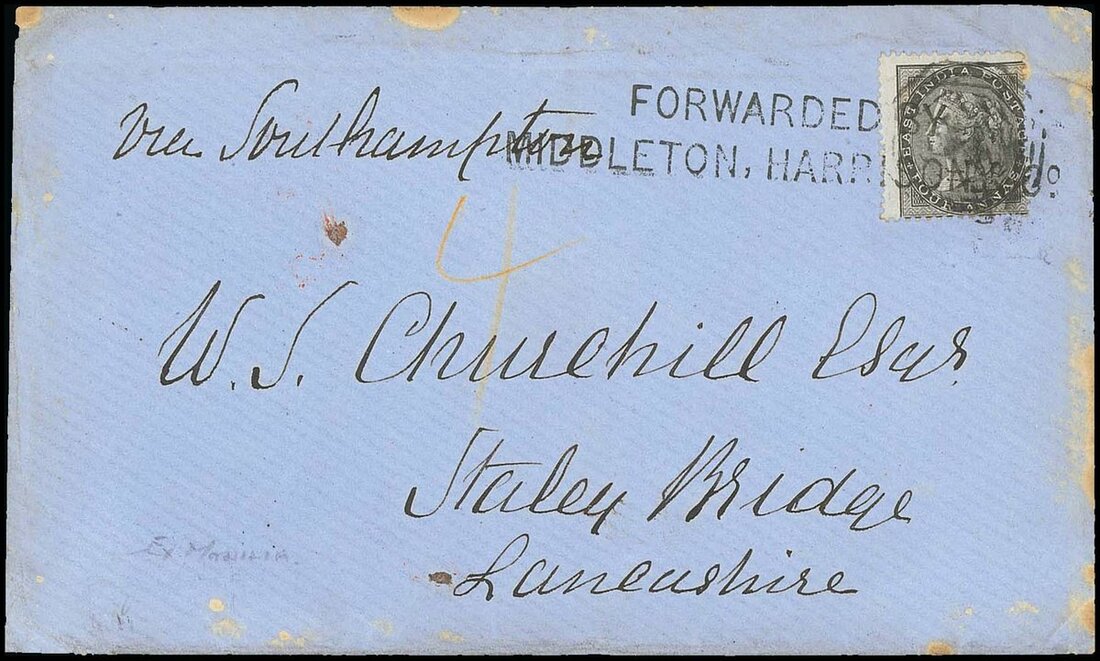 via Southampton
FORWARDED
MIDDLETON, HARRISON & Co.
EAST INDIA POSTAGE
FOUR ANNAS
4
W. S. Churchill Esqr.
Staley Bridge
Lancashire